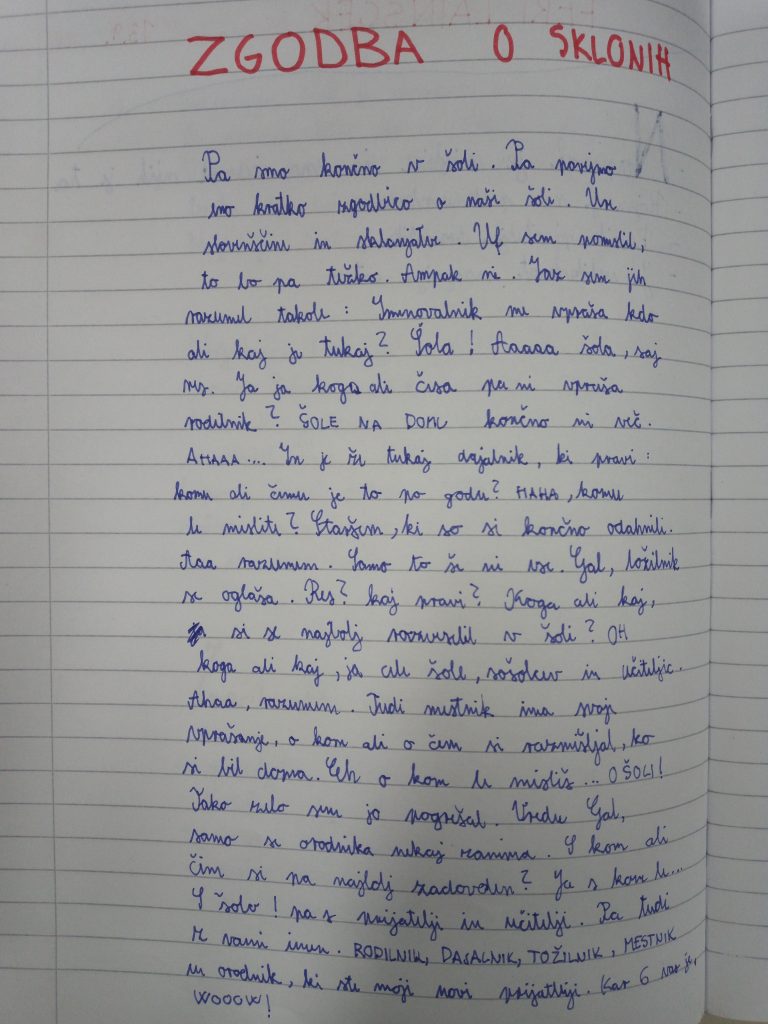 ZGODBA O SKLONIH
Pa smo končno v šoli. Pa povejmo
eno kratko zgodbico o naši šoli. Ure
slovenščine in sklanjatve. Uf sem pomislil,
to bo pa težko. Ampak ne. Jaz sem jih
razumel takole: Imenovalnik me vpraša kdo
ali kaj je tukaj? Šola! Aaaaa šola, saj
res. Ja ja koga ali česa pa ni vpraša
rodilnik? ŠOLE NA DOMU končno ni več.
AHAAA.... In je že tukaj dajalnik, ki pravi:
komu ali čemu je to po godu? HAHA, komu
le mislite? Staršem, ki so si končno odahnili.
Aaa razumem. Samo to še ni vse. Gal, tožilnik
se oglaša. Res? kaj pravi? Koga ali kaj,
si se najbolj razveselil v šoli? OH
koga ali kaj, ja cele šole, sošolcev in učiteljic.
Ahaa, razumem. Tudi mestnik ima svoje
vprašanje, o kom ali o čem si razmišljal, ko
si bil doma. Eh o kom le misliš... O ŠOLI!
Tako zelo sem jo pogrešal. Vredu Gal,
samo še orodnika nekaj zanima. S kom ali
čim si pa najbolj zadovoljen? Ja s kom le...
S šolo! pa s prijatelji in učitelji. Pa tudi
z vami imen. RODILNIK, DAJALNIK, TOŽILNIK, MESTNIK
in orodnik, ki ste moji novi prijatelji. Kar 6 vas je,
WOOOW!